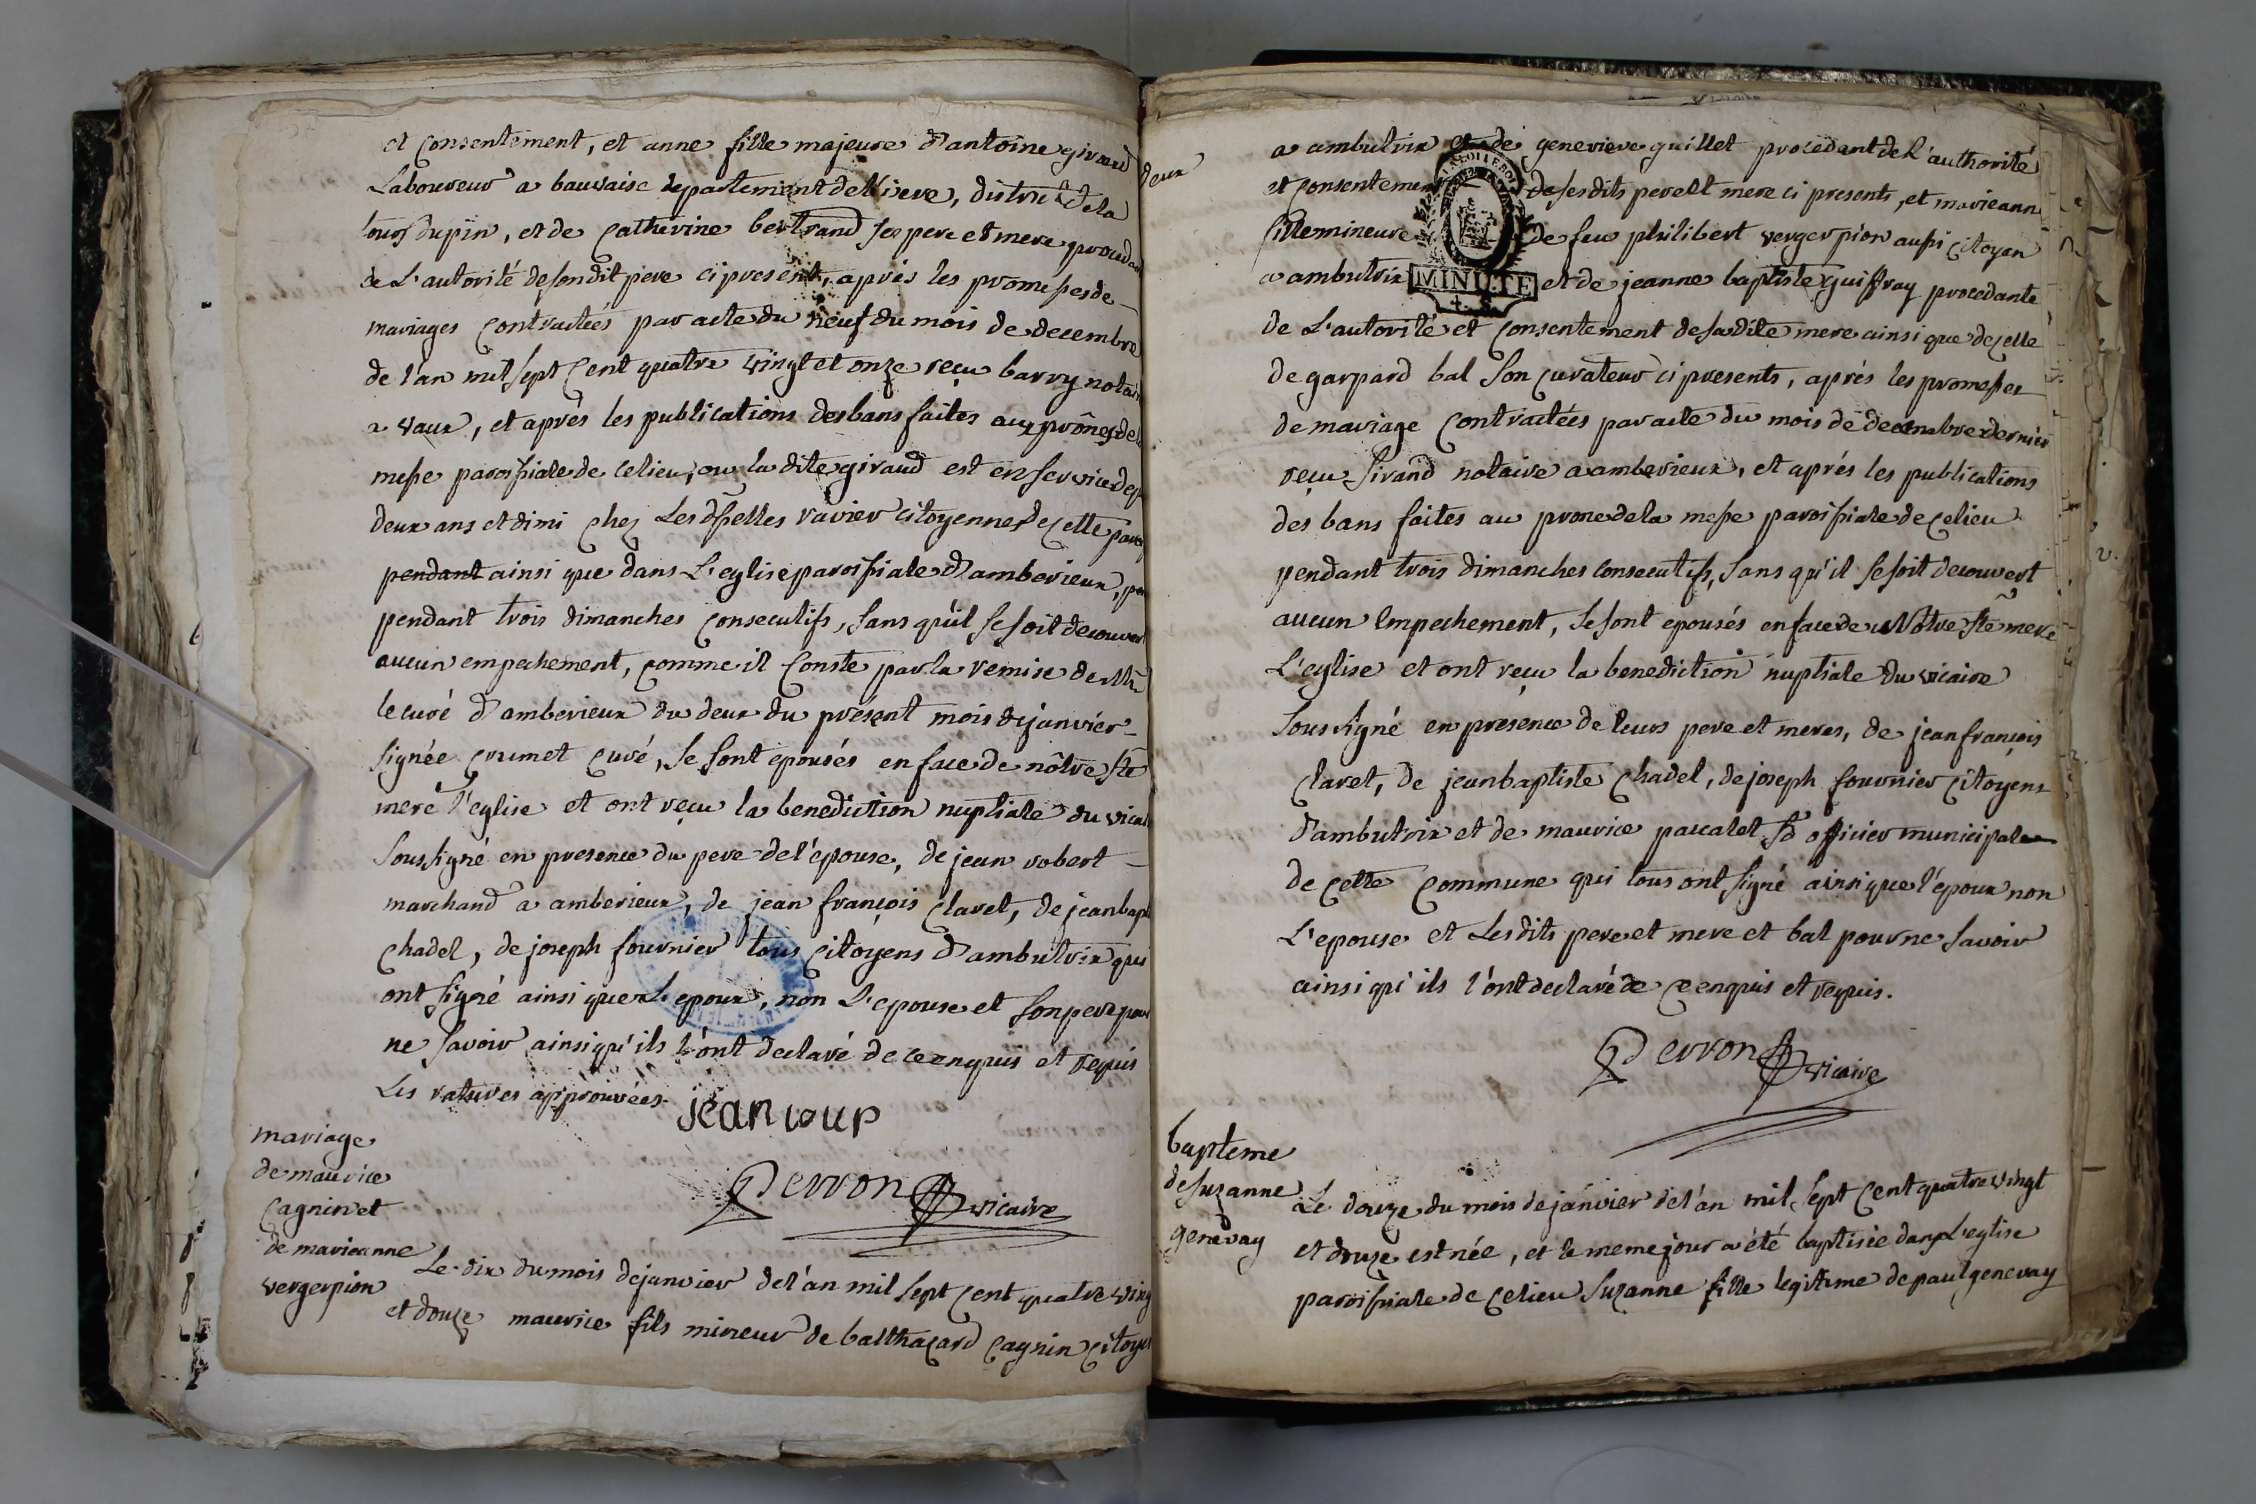 et consentement, et anne fille majeure d'antoine giraud
Laboureur a bauvaise departement del'isere, district dela
tour dupin, et de Catherine bertrand ses pere et mere procedan
de L'autorité desondit pere ci present, aprés les promesses de
mariages contractées par acte du neuf du mois de decembre
de l'an mil sept cent quatre vingt et onze reçu barry notai
a vaux, et aprés les publications des bans faites aux prônes de
messe paroissiale de celieu, ou la dite giraud est en service dep
deux ans et dimi chez Les dlles ravier citoyennes de cette paro
pendant ainsi que dans L'eglise paroissiale d'amberieux,
pendant trois dimanches consecutifs, sans qu'il se soit decouver
aucun empechement, comme il conste par la remise de Mr
le curé d'amberieux du deux du présent mois de janvier
signée grumet curé, se sont epousés en face de nôtre ste
mere l'eglise et ont reçu la benediction nuptiale du vicai
soussigné en presence du pere de l'epouse, de jean robert
marchand a amberieux, de jean françois claret, de jean bapt
chadel, de joseph fournier tous citoyens d'ambutrix qui
ont signé ainsi que L'epoux, non L'epouse et son pere pour
ne savoir ainsi qu'ils l'ont declaré de ce enquis et requis
Les ratures approuvées. jean loup
Perron vicaire
mariage
de maurice
cagnin et
de marieanne
vergerpion
Le dix du mois de janvier de l'an mil sept cent quatre ving
et douze maurice fils mineur de balthazard cagnin citoye
deux
a ambutrix et de genevieve guillet procedant de L'authorité
et consentement de ses dits pere et mere ci presents, et marieann
fille mineure de feu philibert vergerpion aussi citoyen
a ambutrix et de jeanne baptiste guiffray procedante
MINUTE
de L'autorité et consentement de sadite mere ainsi que de celle
de gaspard bal son curateur ci presents, aprés les promesses
de mariage contractées par acte du mois de decembre dernier
reçu sirand notaire a amberieux, et aprés les publications
des bans faites au prone de la messe paroissiale de celieu
pendant trois dimanches consecutifs, sans qu'il se soit decouvert
aucun empechement, se sont epousés en face de Nôtre ste mere
L'eglise et ont reçu la benediction nuptiale du vicaire
soussigné en presence de leurs pere et meres, de jean françois
claret, de jean baptiste chadel, de joseph fournier citoyens
d'ambutrix et de maurice pascalet sd officier municipal
de cette commune qui tous ont signé ainsi que l'epoux non
L'epouse et Lesdits pere et mere et bal pour ne savoir
ainsi qu'ils l'ont declaré de ce enquis et requis.
Perron vicaire
bapteme
de suzanne
genevay
Le douze du mois de janvier de l'an mil sept cent quatre vingt
et douze est née, et le meme jour a été baptisée dans L'eglise
paroissiale de celieu suzanne fille legitime de paul genevay